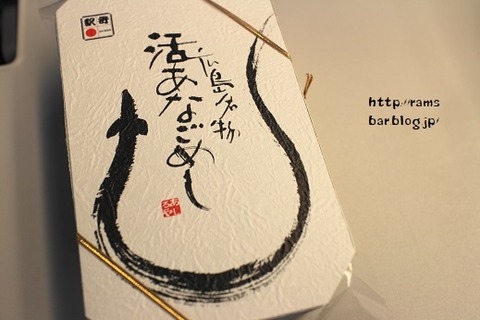 駅弁
広島名物
活あなごめし
http://rams
bar.blog.jp/